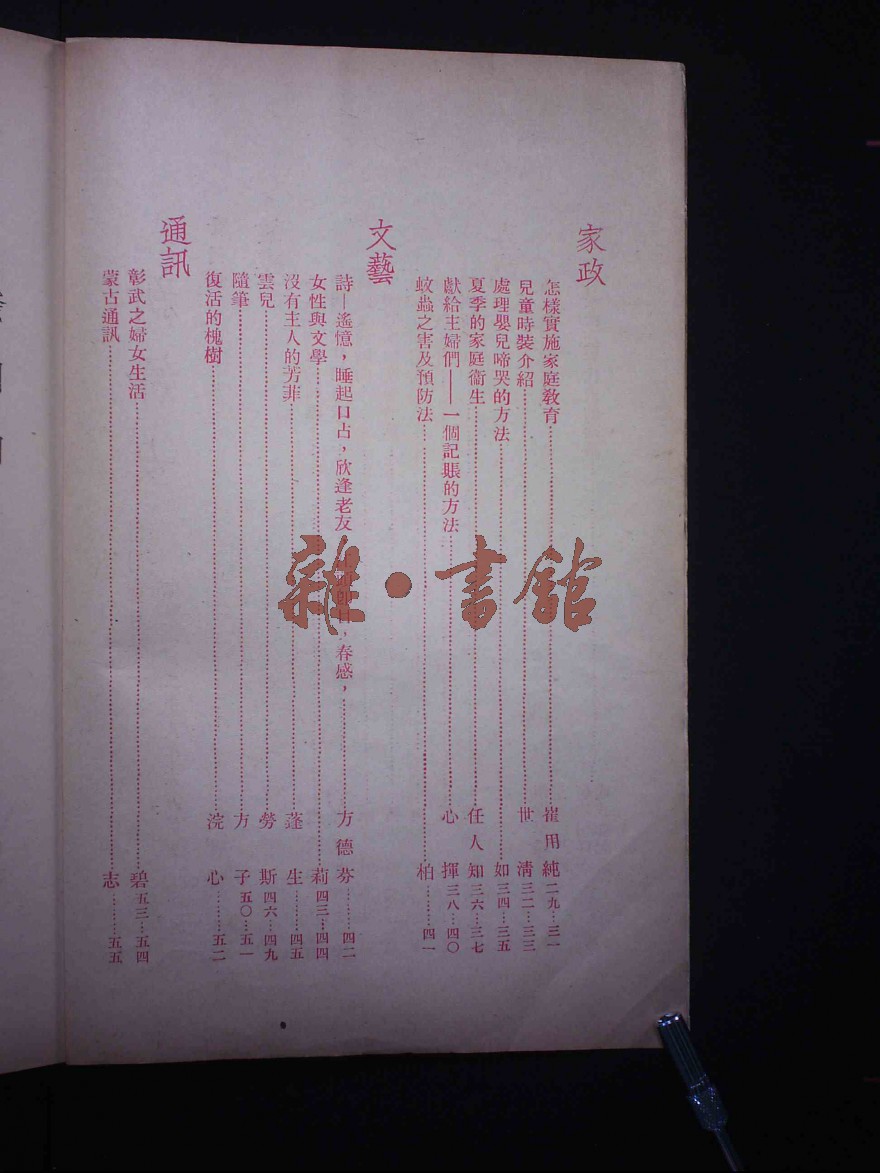 家政
怎樣實施家庭教育……崔用純 二九…三一
兒童時裝介紹……世清 三二…三三
處理嬰兒啼哭的方法……如 三四…三五
夏季的家庭衞生……任人知 三六…三七
獻給主婦們——一個記賬的方法……心揮 三八…四〇
蚊蟲之害及預防法……柏……四一
文藝
詩—遙憶，睡起口占，欣逢老友，春感，……方德芬……四二
女性與文學……莉 四三…四四
沒有主人的芳菲……蓬生……四五
雲兒……勞斯 四六…四九
隨筆……方子 五〇…五一
復活的槐樹……浣心……五二
通訊
彰武之婦女生活……碧 五三…五四
蒙古通訊……志……五五
雜·書館